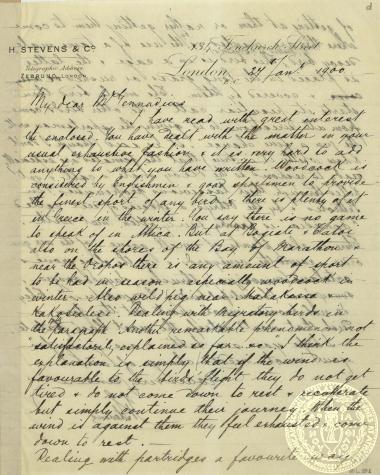 H. STEVENS & Co.
Telegraphic Address
ZEBRUNO, LONDON.
Fenchurch Street
London, 27 Jany 1900
My dear Mr Gennadius
I have read with great interest
the enclosed. You have dealt with the matter in your
usual exhaustive fashion & it is very hard to add
anything to what you have written. Woodcock is
considered by Englishmen & good sportsmen to provide
the finest sport of any bird & there is plenty of it
in Greece in the winter. You say there is no game
to speak of in Attica. But
also on the shores of the Bay of Marathon &
near the Oropos there is any amount of sport
to be had in season - especially woodcock in
winter. Also wild pig near Malakassa &
Kakosalesi. Dealing with Migratory birds in
the paragraph Another remarkable phenomenon not
satisfactorily explained so far &c. I think the
explanation is simply that if the wind is
favourable to the birds flight they do not get
tired & do not come down to rest & recuperate
but simply continue their journey. When the
wind is against them they feel exhausted & come
down to rest. —
Dealing with partridges a favourite way